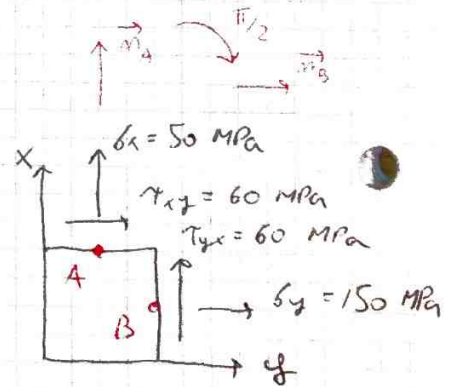 π/2
n_A
n_B
σx = 50 MPa
X
τxy = 60 MPa
τyx = 60 MPa
A
σy = 150 MPa
B
y